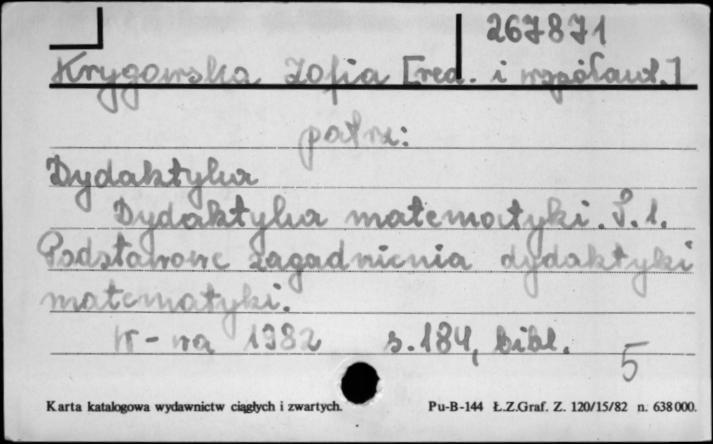 267871
Krygowska Zofia [red. i współaut.]
patrz:
Dydaktyka
Dydaktyka matematyki. T. 1.
Podstawowe zagadnienia dydaktyki
matematyki.
W-wa 1982 s. 184, bibl.
5
Karta katalogowa wydawnictw ciągłych i zwartych. Pu-B-144 Ł.Z.Graf. Z. 120/15/82 n. 638000.